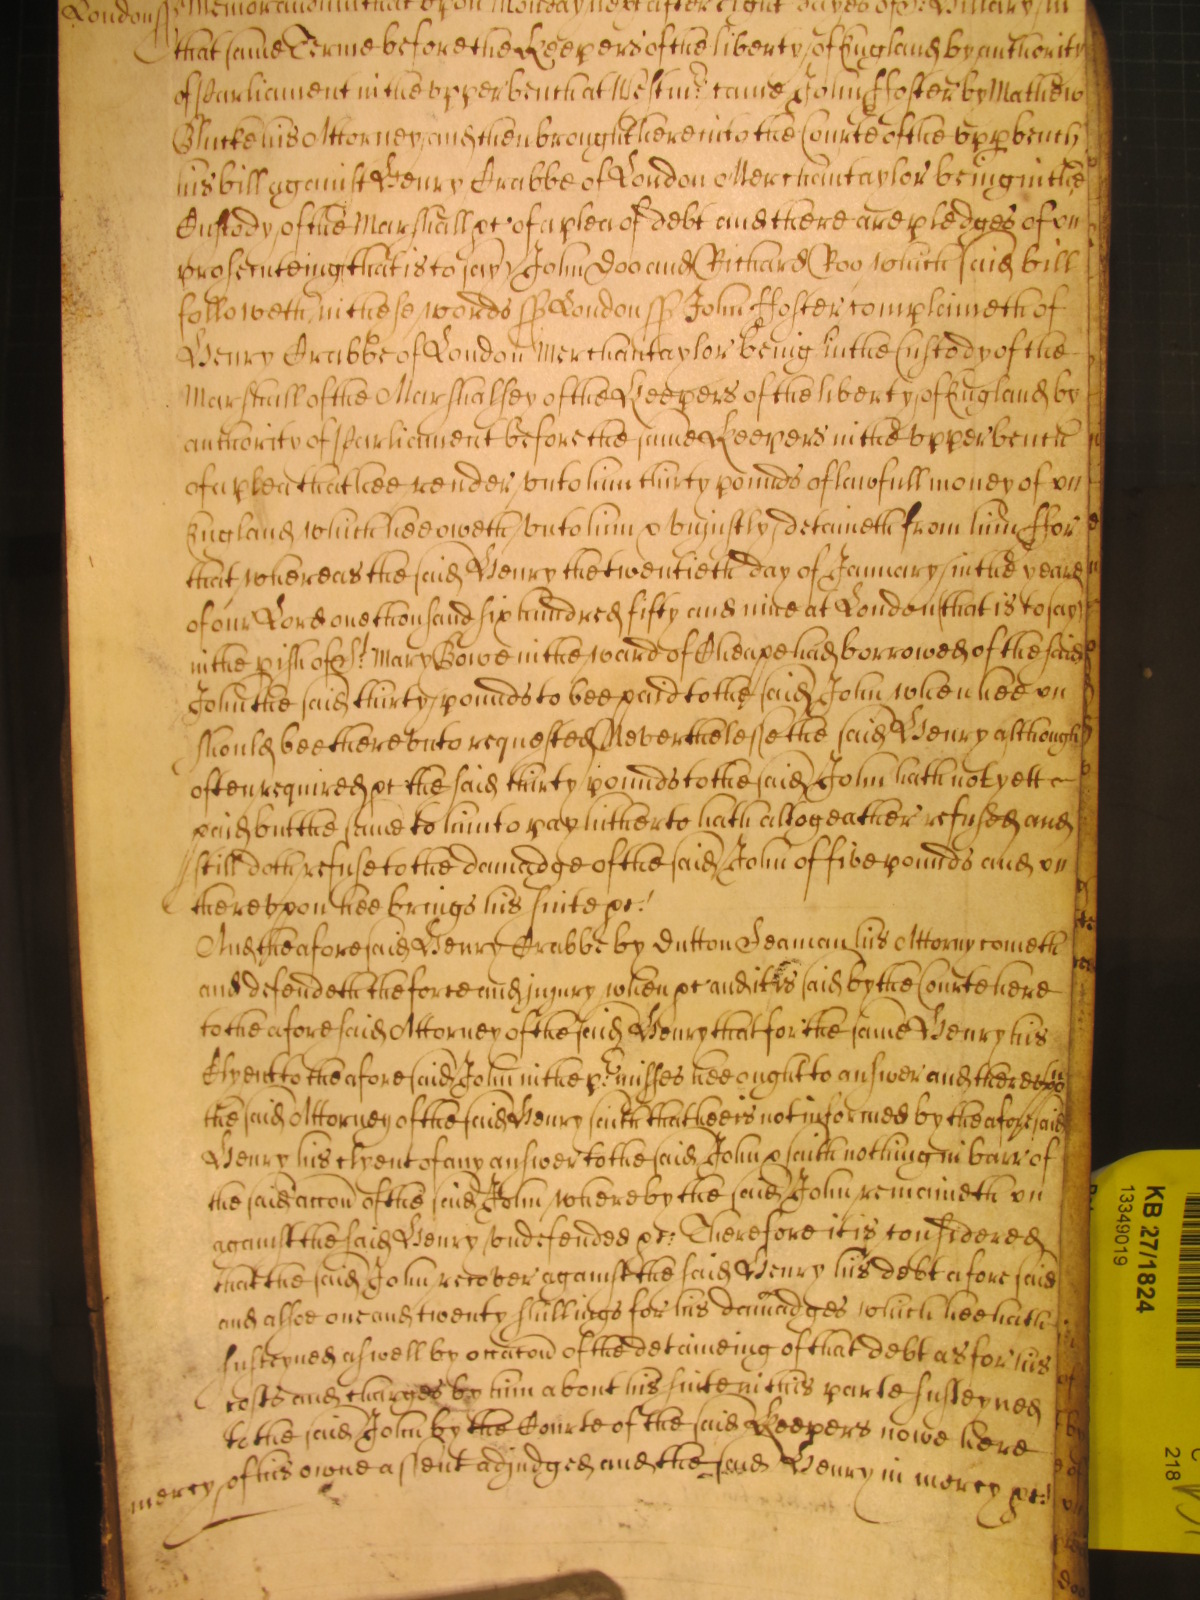 London ss Memorandum that upon Monday next after eight dayes of ye Bl: Mary in
that same Terme before the Keepers of the liberty of England by authority
of Parliament in the upper bench at Westmr came John Ffoster by Mathew
his Attorney and then brought here into the Courte of the upp bench
his bill against Henry Crabbe of London Merchantaylor being in the
Custody of the Marshall &c of a plea of debt and there are pledges of
prosecuteing that is to say John Doo and Richard Roo which said bill
followeth in these words ss London ss John Ffoster complaineth of
Henry Crabbe of London Merchantaylor being in the Custody of the
Marshall of the Marshalsey of the Keepers of the liberty of England by
authority of Parliament before the same Keepers in the upper bench
of a plea that hee render unto him thirty pounds of lawfull money of
England which hee oweth unto him & unjustly detaineth from him Ffor
that whereas the said Henry the twentieth day of January in the yeare
of our Lord one thousand six hundred fifty and nine at London (that is to say)
in the pish of St Mary Bowe in the ward of Cheape had borrowed of the said
John the said thirty pounds to bee paid to the said John when hee
should bee thereunto requested Neverthelesse the said Henry although
often required &c the said thirty pounds to the said John hath not yett
paid but the same to him to pay hitherto hath altogeather refused and
still doth refuse to the damadge of the said John of five pounds and
thereupon hee brings his suite &c
And the aforesaid Henry Crabbe by Dutton Seaman his Attorny cometh
and defendeth the force and injury when &c and it is said by the Courte here
to the aforesaid Attorney of the said Henry that for the same Henry his
Clyent to the aforesaid John in the pmisses hee ought to answer and thereupō
the said Attorney of the said Henry saith that hee is not informed by the aforesaid
Henry his clyent of any answer to the said John & saith nothing in barr of
the said accon of the said John whereby the said John remaineth
against the said Henry undefended &c: Therefore it is considered
that the said John recover against the said Henry his debt aforesaid
and alsoe one and twenty shillings for his damadges which hee hath
susteyned aswell by occacon of the detaineing of that debt as for his
costs and charges by him about his suite in this parte susteyned
to the said John by the Courte of the said Keepers nowe here
mercy of his owne assent adjudged and the said Henry in mercy &c:
KB 27/1824
13349019
218